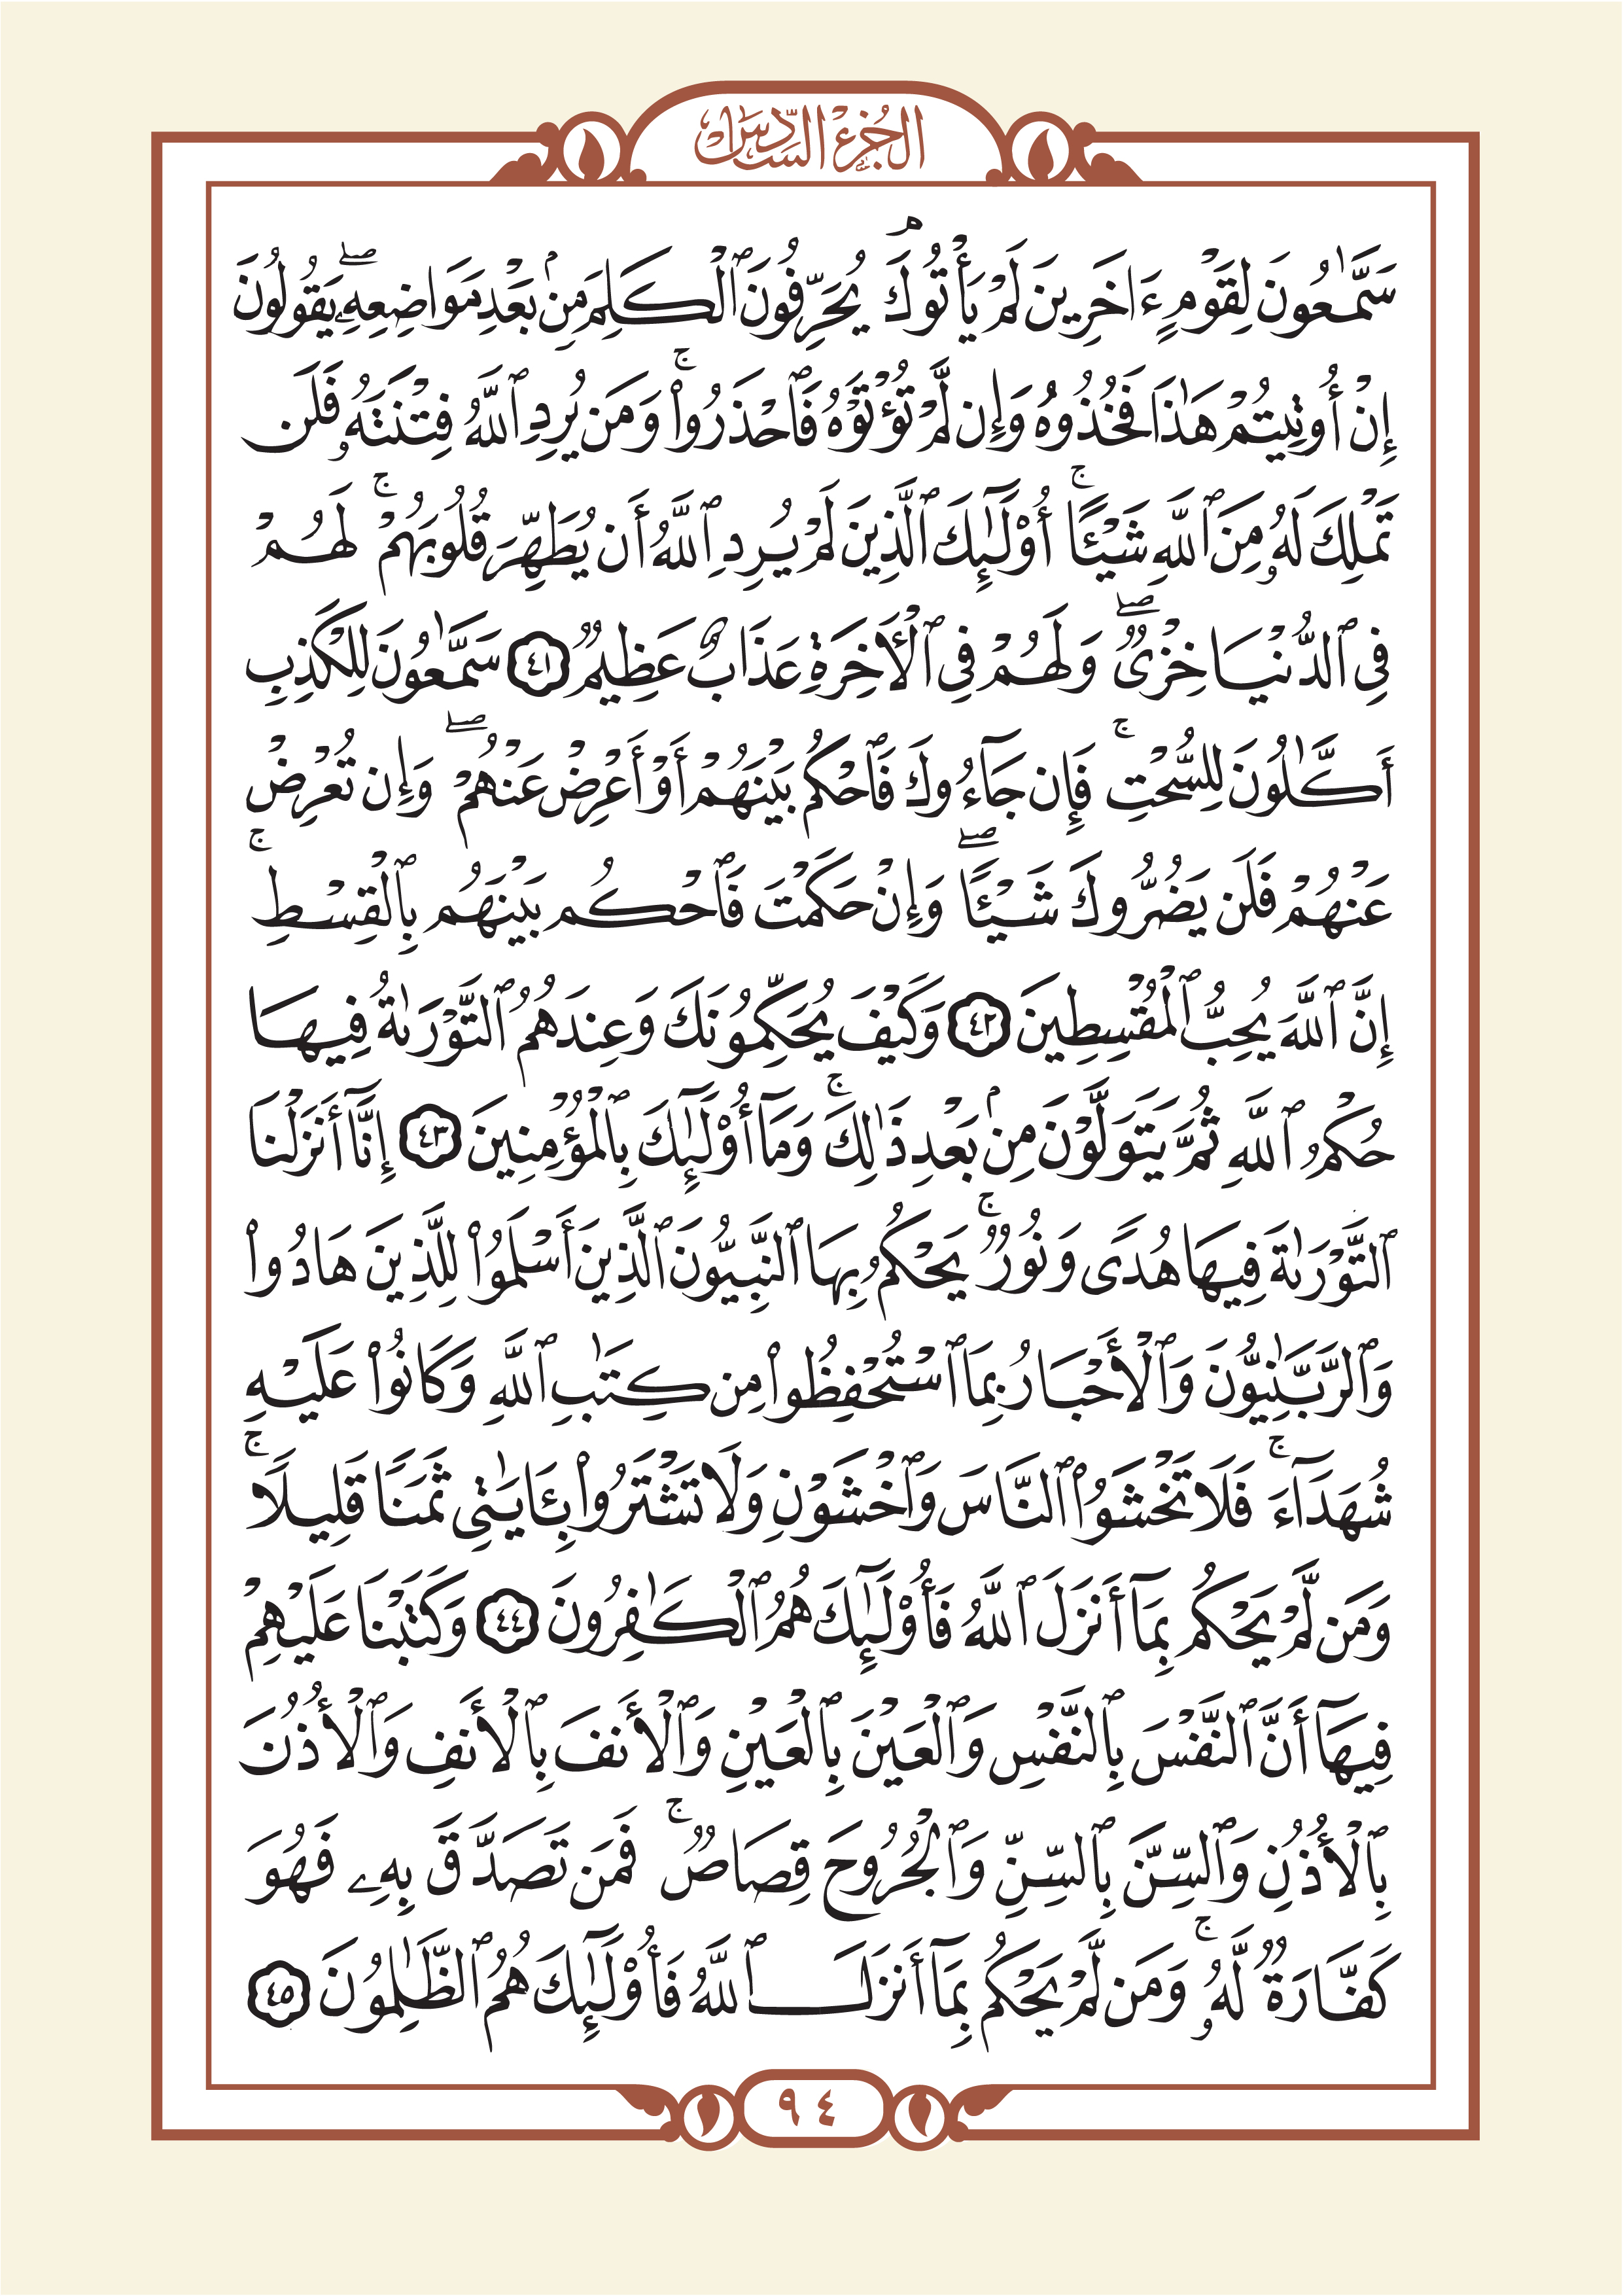 الجزء السادس
سَمَّٰعُونَ لِقَوْمٍ ءَاخَرِينَ لَمْ يَأْتُوكَۘ يُحَرِّفُونَ ٱلْكَلِمَ مِنۢ بَعْدِ مَوَاضِعِهِۦۖ يَقُولُونَ
إِنْ أُوتِيتُمْ هَٰذَا فَخُذُوهُ وَإِن لَّمْ تُؤْتَوْهُ فَٱحْذَرُوا۟ۚ وَمَن يُرِدِ ٱللَّهُ فِتْنَتَهُۥ فَلَن
تَمْلِكَ لَهُۥ مِنَ ٱللَّهِ شَيْـًٔاۚ أُو۟لَٰٓئِكَ ٱلَّذِينَ لَمْ يُرِدِ ٱللَّهُ أَن يُطَهِّرَ قُلُوبَهُمْۚ لَهُمْ
فِى ٱلدُّنْيَا خِزْىٌۖ وَلَهُمْ فِى ٱلْأَخِرَةِ عَذَابٌ عَظِيمٌ ٤١ سَمَّٰعُونَ لِلْكَذِبِ
أَكَّٰلُونَ لِلسُّحْتِۚ فَإِن جَآءُوكَ فَٱحْكُم بَيْنَهُمْ أَوْ أَعْرِضْ عَنْهُمْۖ وَإِن تُعْرِضْ
عَنْهُمْ فَلَن يَضُرُّوكَ شَيْـًٔاۖ وَإِنْ حَكَمْتَ فَٱحْكُم بَيْنَهُم بِٱلْقِسْطِۚ
إِنَّ ٱللَّهَ يُحِبُّ ٱلْمُقْسِطِينَ ٤٢ وَكَيْفَ يُحَكِّمُونَكَ وَعِندَهُمُ ٱلتَّوْرَىٰةُ فِيهَا
حُكْمُ ٱللَّهِ ثُمَّ يَتَوَلَّوْنَ مِنۢ بَعْدِ ذَٰلِكَۚ وَمَآ أُو۟لَٰٓئِكَ بِٱلْمُؤْمِنِينَ ٤٣ إِنَّآ أَنزَلْنَا
ٱلتَّوْرَىٰةَ فِيهَا هُدًى وَنُورٌۚ يَحْكُمُ بِهَا ٱلنَّبِيُّونَ ٱلَّذِينَ أَسْلَمُوا۟ لِلَّذِينَ هَادُوا۟
وَٱلرَّبَّٰنِيُّونَ وَٱلْأَحْبَارُ بِمَا ٱسْتُحْفِظُوا۟ مِن كِتَٰبِ ٱللَّهِ وَكَانُوا۟ عَلَيْهِ
شُهَدَآءَۚ فَلَا تَخْشَوُا۟ ٱلنَّاسَ وَٱخْشَوْنِ وَلَا تَشْتَرُوا۟ بِـَٔايَٰتِى ثَمَنًا قَلِيلًاۚ
وَمَن لَّمْ يَحْكُم بِمَآ أَنزَلَ ٱللَّهُ فَأُو۟لَٰٓئِكَ هُمُ ٱلْكَٰفِرُونَ ٤٤ وَكَتَبْنَا عَلَيْهِمْ
فِيهَآ أَنَّ ٱلنَّفْسَ بِٱلنَّفْسِ وَٱلْعَيْنَ بِٱلْعَيْنِ وَٱلْأَنفَ بِٱلْأَنفِ وَٱلْأُذُنَ
بِٱلْأُذُنِ وَٱلسِّنَّ بِٱلسِّنِّ وَٱلْجُرُوحَ قِصَاصٌۚ فَمَن تَصَدَّقَ بِهِۦ فَهُوَ
كَفَّارَةٌ لَّهُۥۚ وَمَن لَّمْ يَحْكُم بِمَآ أَنزَلَ ٱللَّهُ فَأُو۟لَٰٓئِكَ هُمُ ٱلظَّٰلِمُونَ ٤٥
٩٤